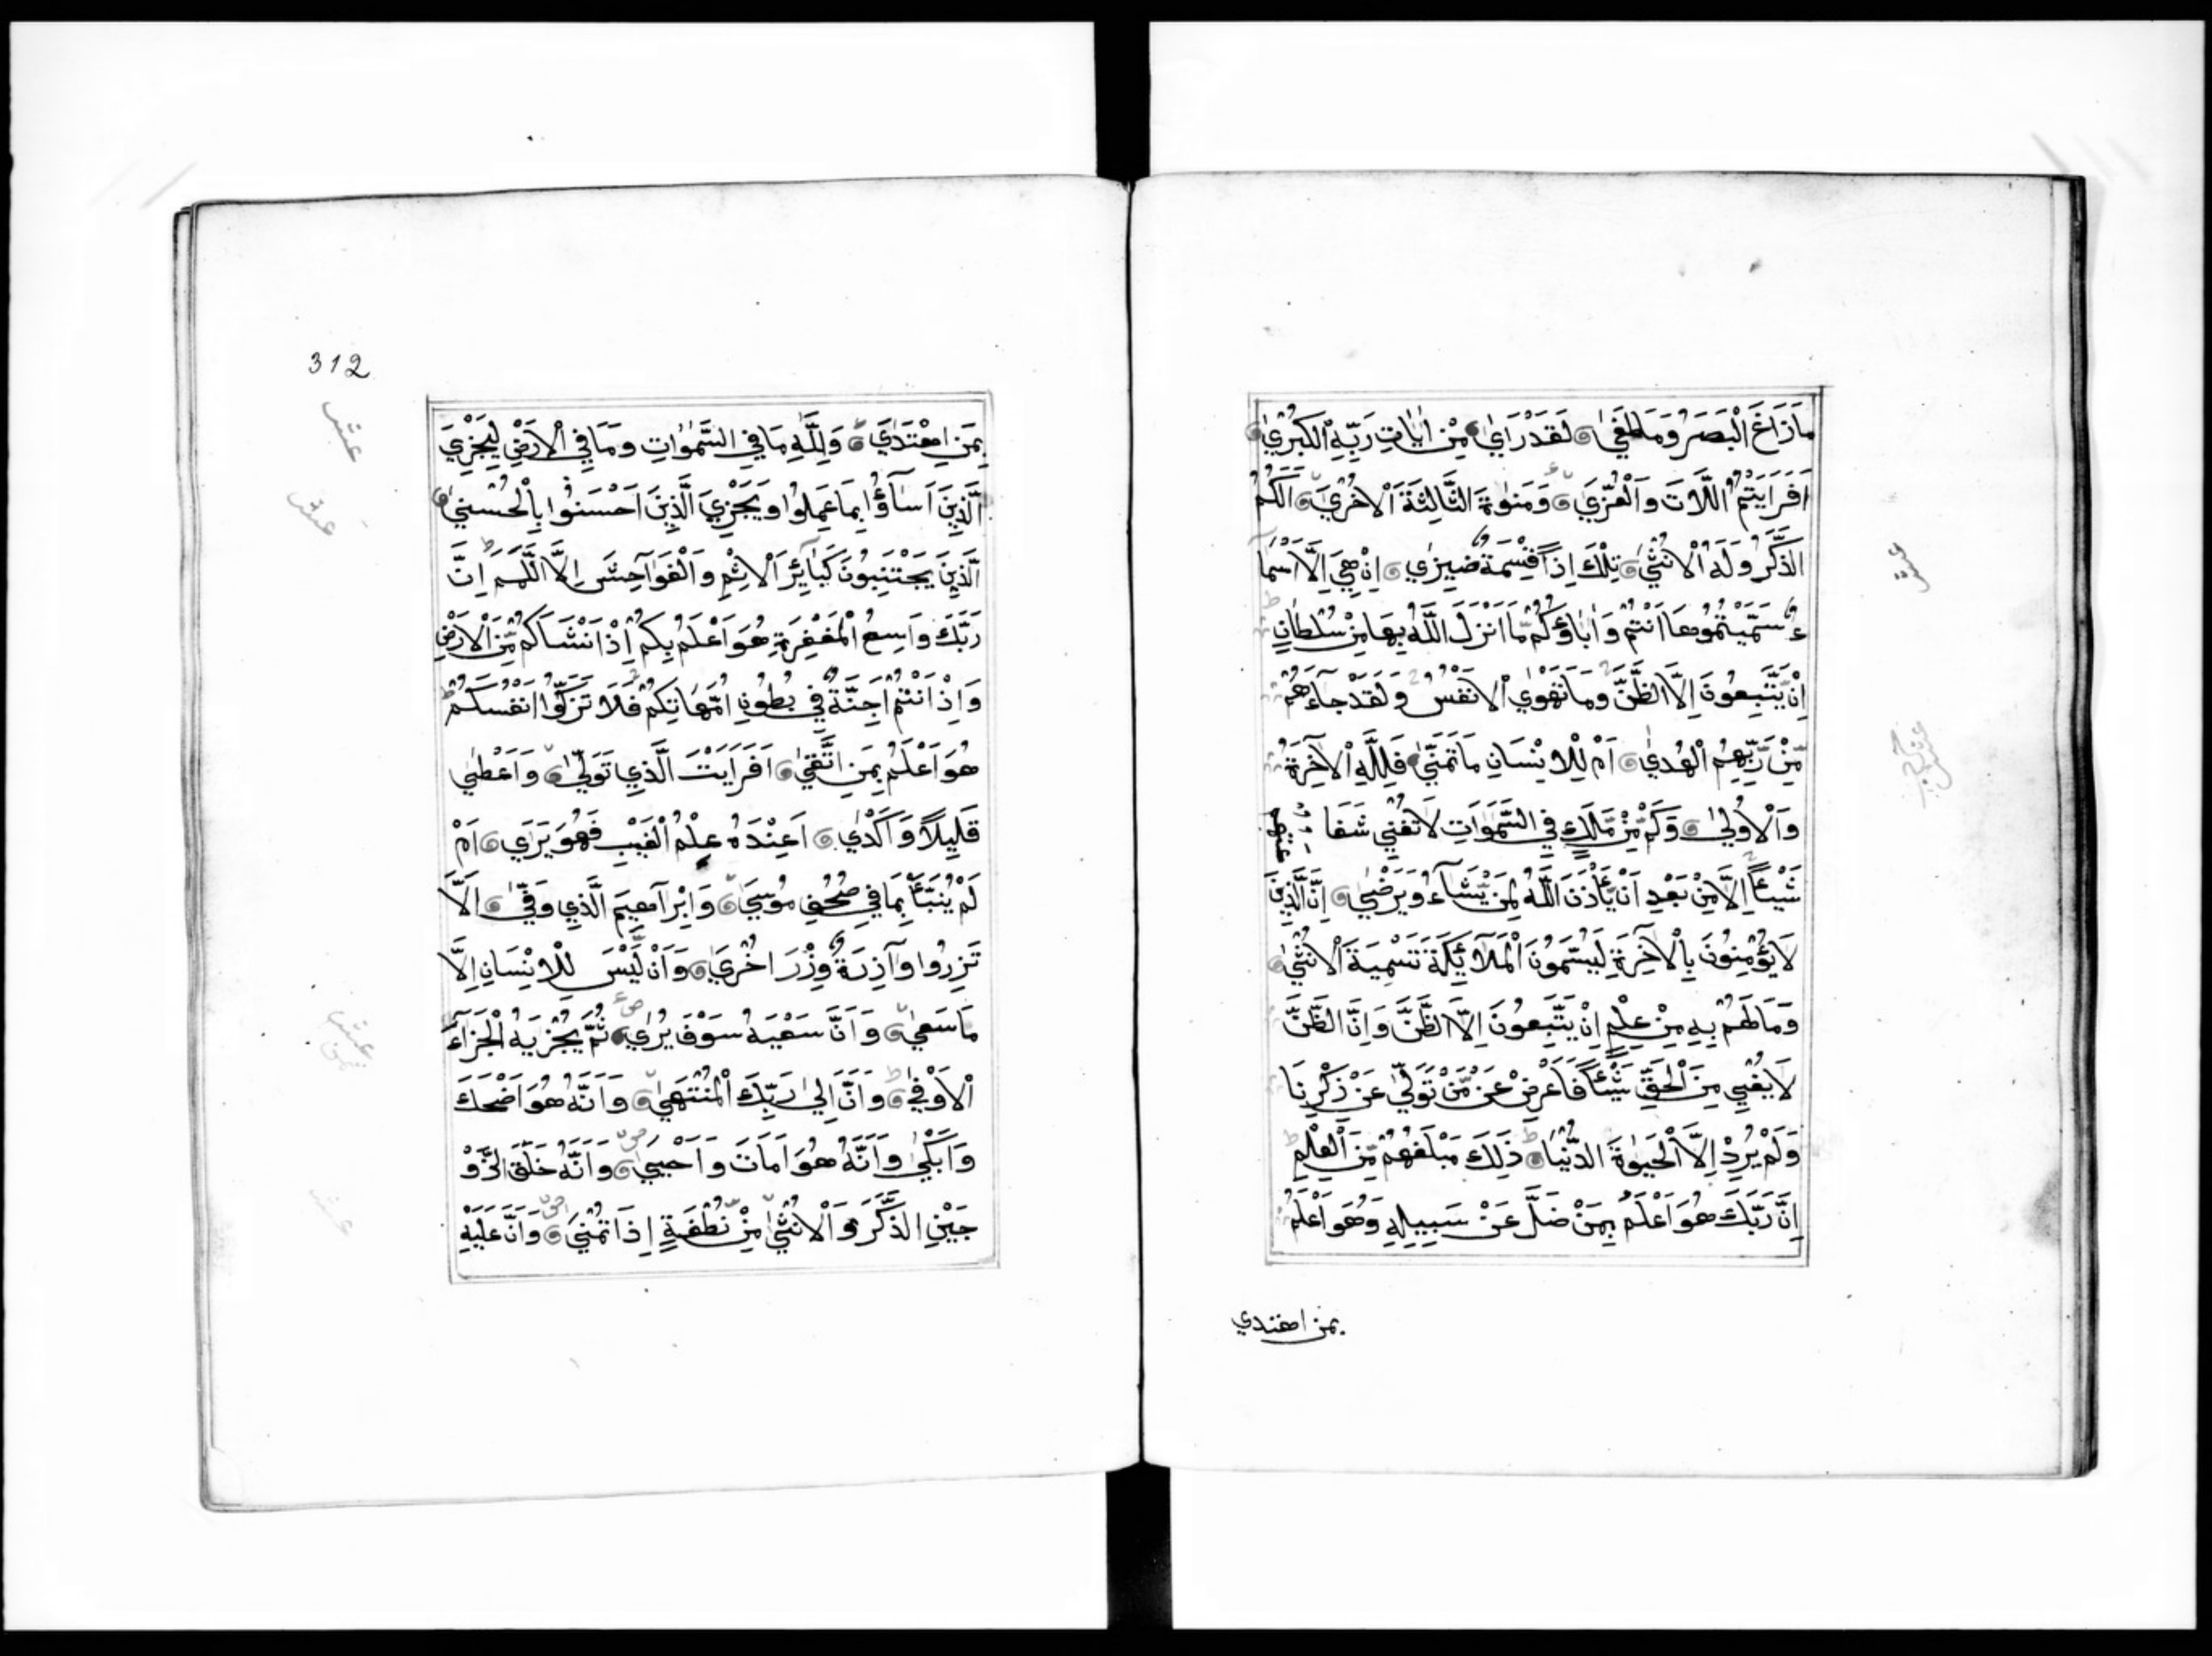 مَا زَاغَ الْبَصَرُ وَمَا طَغَىٰ لَقَدْ رَاَىٰ مِنْ اٰيَاتِ رَبِّهِ الْكُبْرَىٰ
اَفَرَاَيْتُمُ اللَّاتَ وَالْعُزَّىَ وَمَنٰوةَ الثَّالِثَةَ الْاُخْرَىَ اَلَكُمُ
الذَّكَرُ وَلَهُ الْاُنْثَىٰ تِلْكَ اِذًا قِسْمَةٌ ضِيزٰي اِنْ هِيَ اِلَّا اَسْمَا
ءٌ سَمَّيْتُمُوهَا اَنْتُمْ وَاٰبَاؤُكُمْ مَّا اَنْزَلَ اللَّهُ بِهَا مِنْ سُلْطَانٍ
اِنْ يَّتَّبِعُونَ اِلَّا الظَّنَّ وَمَا تَهْوَي الْاَنْفُسُ وَلَقَدْ جَآءَهُمْ
مِّنْ رَّبِّهِمُ الْهُدٰي اَمْ لِلْاِنْسَانِ مَا تَمَنّٰي فَلِلَّهِ الْاٰخِرَةُ
وَالْاُولٰي وَكَمْ مِّنْ مَّلَكٍ فِي السَّمٰوَاتِ لَا تُغْنِي شَفَا عتهم
شَيْئًا اِلَّا مِنْ بَعْدِ اَنْ يَّأْذَنَ اللَّهُ لِمَنْ يَّشَآءُ وَيَرْضٰي اِنَّ الَّذِينَ
لَا يُؤْمِنُونَ بِالْاٰخِرَةِ لَيُسَمُّونَ الْمَلَآئِكَةَ تَسْمِيَةَ الْاُنْثٰي
وَمَا لَهُمْ بِهِ مِنْ عِلْمٍ اِنْ يَتَّبِعُونَ اِلَّا الظَّنَّ وَاِنَّ الظَّنَّ
لَا يُغْنِي مِنَ الْحَقِّ شَيْئًا فَاَعْرِضْ عَنْ مَّنْ تَوَلّٰي عَنْ ذِكْرِنَا
وَلَمْ يُرِدْ اِلَّا الْحَيٰوةَ الدُّنْيَا ذَلِكَ مَبْلَغُهُمْ مِّنَ الْعِلْمِ
اِنَّ رَبَّكَ هُوَ اَعْلَمُ بِمَنْ ضَلَّ عَنْ سَبِيلِهِ وَهُوَ اَعْلَمُ
بمن اهتدي
312
بِمَنِ اهْتَدٰيَ وَلِلَّهِ مَا فِي السَّمٰوٰاتِ وَمَا فِي الْاَرْضِ لِيَجْزِيَ
الَّذِينَ اَسَآؤُا بِمَا عَمِلُوا وَيَجْزِيَ الَّذِينَ اَحْسَنُوا بِالْحُسْنٰي
الَّذِينَ يَجْتَنِبُونَ كَبَآئِرَ الْاِثْمِ وَالْفَوَاحِشَ اِلَّا اللَّمَمَ اِنَّ
رَبَّكَ وَاسِعُ الْمَغْفِرَةِ هُوَ اَعْلَمُ بِكُمْ اِذْ اَنْشَاَكُمْ مِّنَ الْاَرْضِ
وَاِذْ اَنْتُمْ اَجِنَّةٌ فِي بُطُونِ اُمَّهَاتِكُمْ فَلَا تُزَكُّوا اَنْفُسَكُمْ
هُوَ اَعْلَمُ بِمَنِ اتَّقٰي اَفَرَاَيْتَ الَّذِي تَوَلّٰي وَاَعْطٰي
قَلِيلًا وَاَكْدٰي اَعِنْدَهُ عِلْمُ الْغَيْبِ فَهُوَ يَرَي اَمْ
لَمْ يُنَبَّأْ بِمَا فِي صُحُفِ مُوسٰي وَاِبْرَاهِيمَ الَّذِي وَفّٰي اَلَّا
تَزِرُوا وَآزِرَةٌ وِزْرَ اُخْرٰيَ وَاَنْ لَّيْسَ لِلْاِنْسَانِ اِلَّا
مَا سَعٰي وَاَنَّ سَعْيَهُ سَوْفَ يُرٰي ثُمَّ يُجْزَيهُ الْجَزَآءَ
الْاَوْفٰي وَاَنَّ اِلٰي رَبِّكَ الْمُنْتَهٰي وَاَنَّهُ هُوَ اَضْحَكَ
وَاَبْكٰي وَاَنَّهُ هُوَ اَمَاتَ وَاَحْيٰي وَاَنَّهُ خَلَقَ الزَّوْ
جَيْنِ الذَّكَرَ وَالْاُنْثٰي مِنْ نُّطْفَةٍ اِذَا تُمْنٰي وَاَنَّ عَلَيْهِ
عشر
عشر
عشر